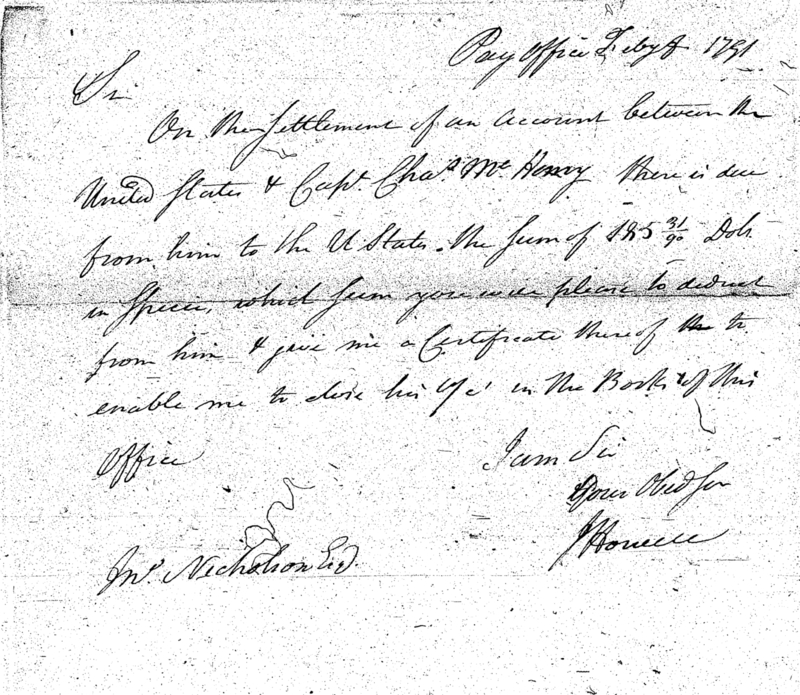 Pay Office Feby 8 1791
Sir
On the Settlement of an Account between the
United States & Capt. Chas. Mc Henry there is due
from him to the U States. the Sum of 185 31/90 Dolls
in Specie, which sum you will please to deduct
from him & give me a Certificate thereof to
enable me to close his a/c in the Books of this
Office
I am Sir
Your Obed Ser
J Howell
Jno. Nicholson Esq.